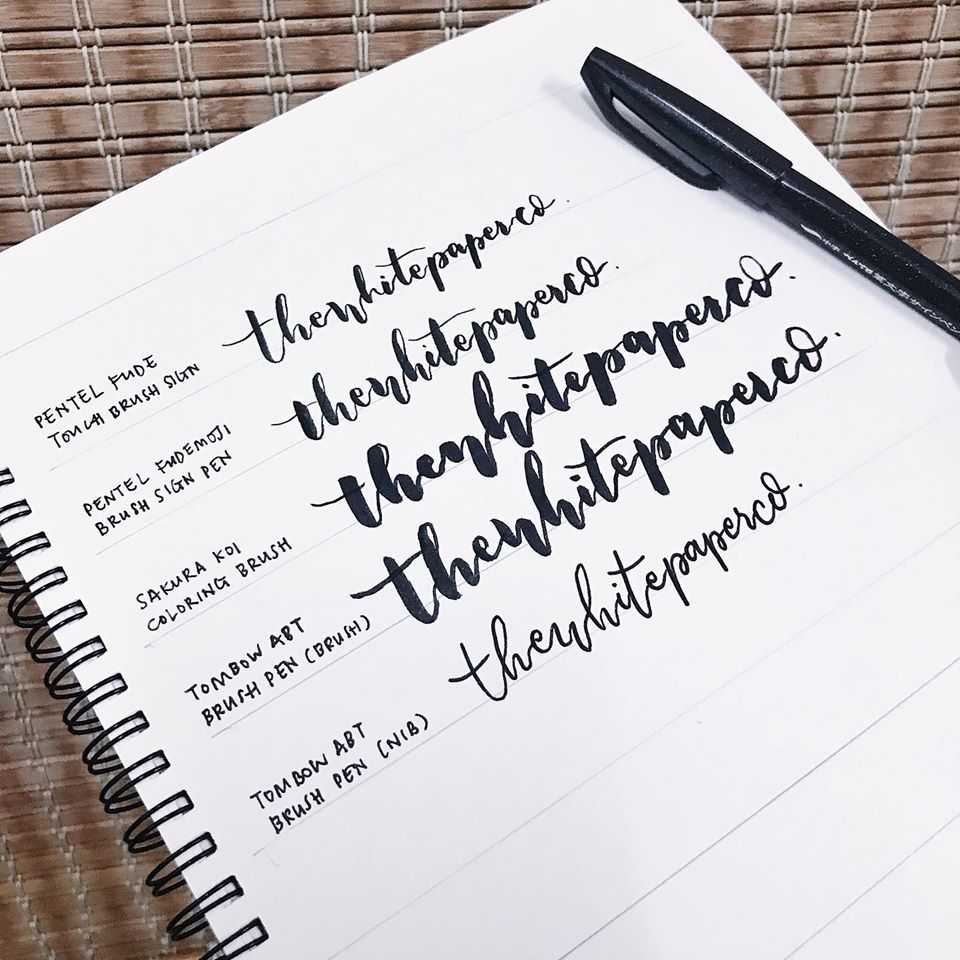 PENTEL FUDE
TOUCH BRUSH SIGN
thewhitepaperco.
PENTEL FUDEMOJI
BRUSH SIGN PEN
thewhitepaperco.
SAKURA KOI
COLORING BRUSH
thewhitepaperco.
TOMBOW ABT
BRUSH PEN (BRUSH)
thewhitepaperco.
TOMBOW ABT
BRUSH PEN (NIB)
thewhitepaperco.